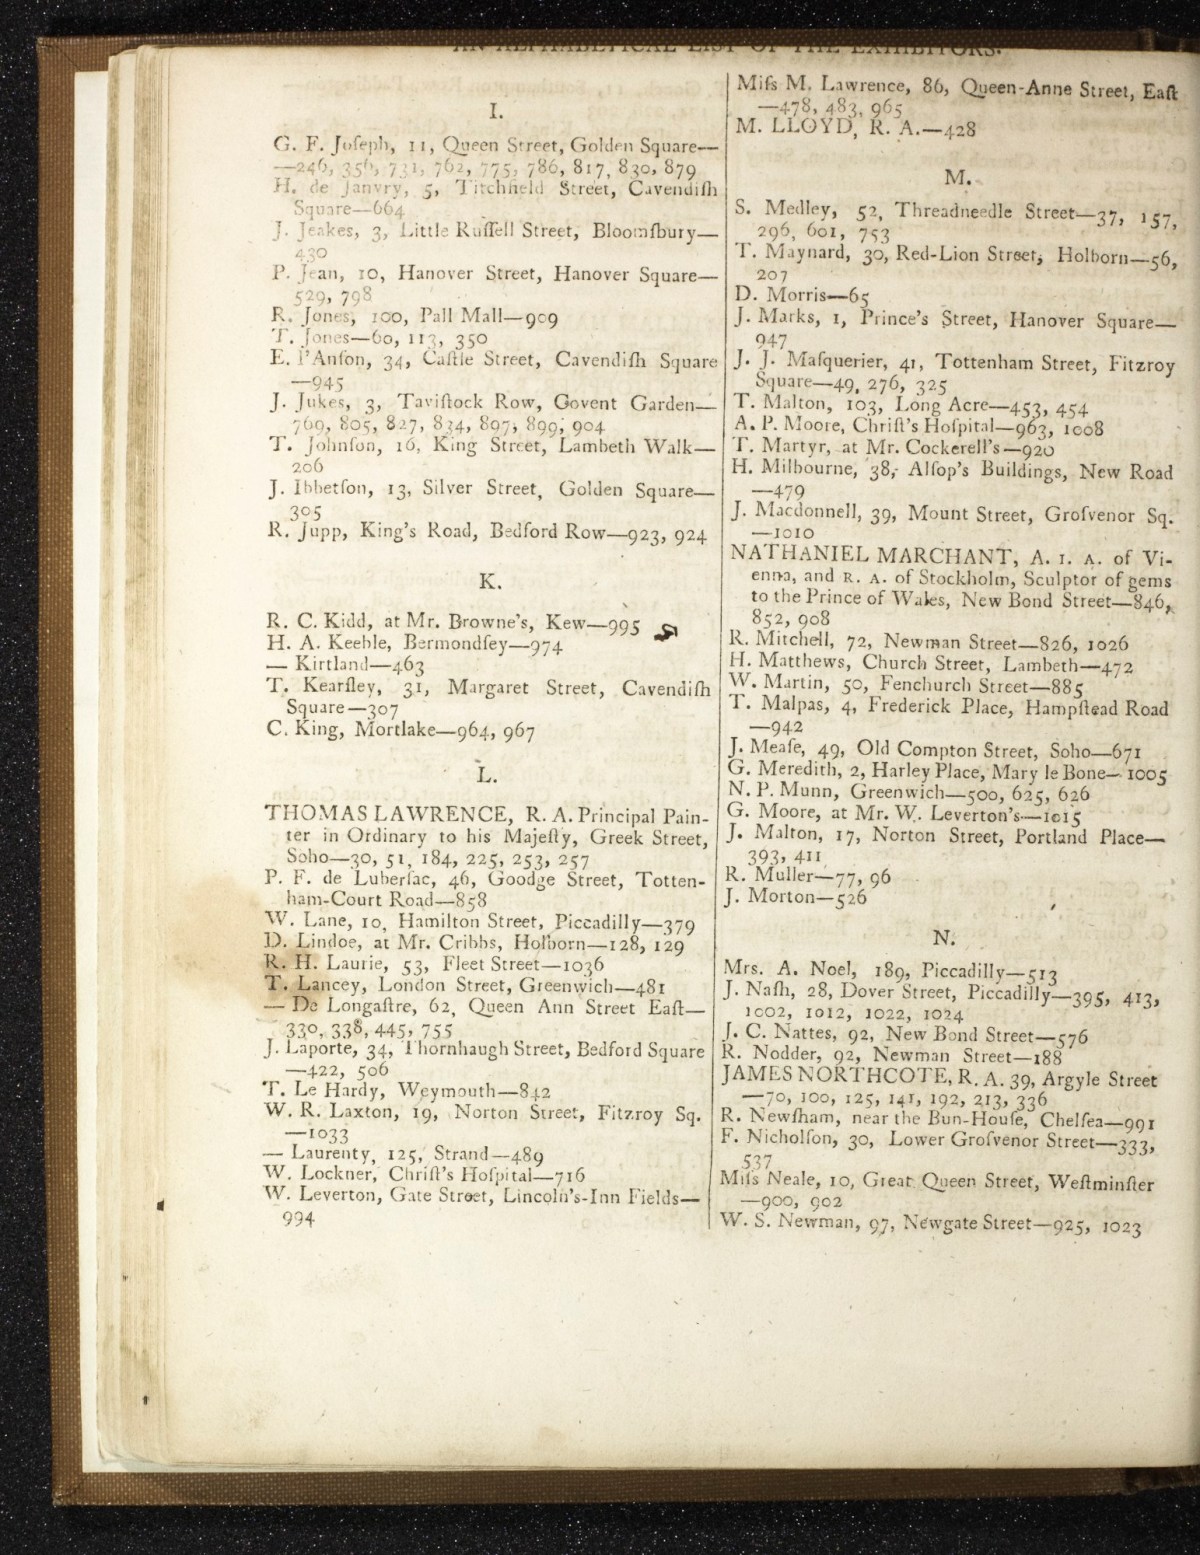 AN ALPHABETICAL LIST OF THE EXHIBITORS.
I.
G. F. Joſeph, 11, Queen Street, Golden Square—
—246, 356, 731, 762, 775, 786, 817, 830, 879
H. de Janvry, 5, Titchfield Street, Cavendiſh
Square—664
J. Jeakes, 3, Little Ruſſell Street, Bloomſbury—
430
P. Jean, 10, Hanover Street, Hanover Square—
529, 798
R. Jones, 100, Pall Mall—909
T. Jones—60, 113, 350
E. I'Anſon, 34, Caſtle Street, Cavendiſh Square
—945
J. Jukes, 3, Taviſtock Row, Govent Garden—
769, 805, 827, 834, 897, 899, 904
T. Johnſon, 16, King Street, Lambeth Walk—
206
J. Ibbetſon, 13, Silver Street, Golden Square—
305
R. Jupp, King's Road, Bedford Row—923, 924
K.
R. C. Kidd, at Mr. Browne's, Kew—995
H. A. Keeble, Bermondſey—974
— Kirtland—463
T. Kearſley, 31, Margaret Street, Cavendiſh
Square—307
C. King, Mortlake—964, 967
L.
THOMAS LAWRENCE, R. A. Principal Pain-
ter in Ordinary to his Majeſty, Greek Street,
Soho—30, 51, 184, 225, 253, 257
P. F. de Luberſac, 46, Goodge Street, Totten-
ham-Court Road—858
W. Lane, 10, Hamilton Street, Piccadilly—379
D. Lindoe, at Mr. Cribbs, Holborn—128, 129
R. H. Laurie, 53, Fleet Street—1036
T. Lancey, London Street, Greenwich—481
— De Longaſtre, 62, Queen Ann Street Eaſt—
330, 338, 445, 755
J. Laporte, 34, Thornhaugh Street, Bedford Square
—422, 506
T. Le Hardy, Weymouth—842
W. R. Laxton, 19, Norton Street, Fitzroy Sq.
—1033
— Laurenty, 125, Strand—489
W. Lockner, Chriſt's Hoſpital—716
W. Leverton, Gate Street, Lincoln's-Inn Fields—
994
Miſs M. Lawrence, 86, Queen-Anne Street, Eaſt
—478, 483, 965
M. LLOYD, R. A.—428
M.
S. Medley, 52, Threadneedle Street—37, 157,
296, 601, 753
T. Maynard, 30, Red-Lion Street, Holborn—56,
207
D. Morris—65
J. Marks, 1, Prince's Street, Hanover Square—
947
J. J. Maſquerier, 41, Tottenham Street, Fitzroy
Square—49, 276, 325
T. Malton, 103, Long Acre—453, 454
A. P. Moore, Chriſt's Hoſpital—963, 1008
T. Martyr, at Mr. Cockerell's—920
H. Milbourne, 38, Alſop's Buildings, New Road
—479
J. Macdonnell, 39, Mount Street, Groſvenor Sq.
—1010
NATHANIEL MARCHANT, A. I. A. of Vi-
enna, and R. A. of Stockholm, Sculptor of gems
to the Prince of Wales, New Bond Street—846,
852, 908
R. Mitchell, 72, Newman Street—826, 1026
H. Matthews, Church Street, Lambeth—472
W. Martin, 50, Fenchurch Street—885
T. Malpas, 4, Frederick Place, Hampſtead Road
—942
J. Meaſe, 49, Old Compton Street, Soho—671
G. Meredith, 2, Harley Place, Mary le Bone—1005
N. P. Munn, Greenwich—500, 625, 626
G. Moore, at Mr. W. Leverton's—1015
J. Malton, 17, Norton Street, Portland Place—
393, 411
R. Muller—77, 96
J. Morton—526
N.
Mrs. A. Noel, 189, Piccadilly—513
J. Naſh, 28, Dover Street, Piccadilly—395, 413,
1002, 1012, 1022, 1024
J. C. Nattes, 92, New Bond Street—576
R. Nodder, 92, Newman Street—188
JAMES NORTHCOTE, R. A. 39, Argyle Street
—70, 100, 125, 141, 192, 213, 336
R. Newſham, near the Bun-Houſe, Chelſea—991
F. Nicholſon, 30, Lower Groſvenor Street—333,
537
Miſs Neale, 10, Great Queen Street, Weſtminſter
—900, 902
W. S. Newman, 97, Newgate Street—925, 1023